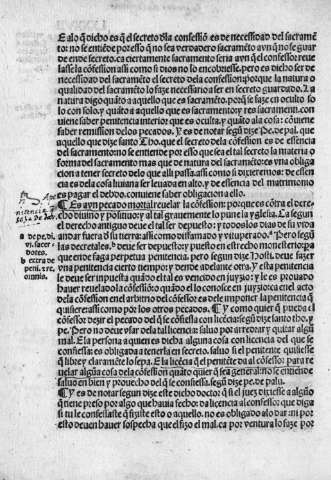 E alo q̃ dicho es q̃ el secreto dela confessiõ es de necessidad del sacramẽ
to: no se entiẽde por esso q̃ no sea verdadero sacramẽto avn q̃ no se guar
de en de secreto. ca ciertamente sacramento seria avn q̃ el confessor reue
lasse la cõfession assi como si dios no lo encobriesse. pero es dicho ser de
necessidad del sacramẽto el secreto dela confession: porque la natura o
qualidad del sacramẽto lo faze necessario a ser en secreto guardado. La
natura digo quãto a aquello que es sacramẽto. porq̃ se faze en oculto so
lo con solo: y quãto a aquello que es sacramento y res sacramenti. con
uiene saber penitencia interior que es oculta. y quãto ala cosa: cõuiene
saber remission delos pecados. Y es de notar segũ dize Pe. de pal. que
aquello que dize santo Tho. que el secreto dela cõfession es de essencia
del sacramento: no se entiende por esso que sea el tal secreto la materia o
forma del sacramento mas que de natura del sacramẽto: es vna obliga
cion a tener secreto delo que alli passa. assi como si dixeremos: de essen
cia es dela cosa liuiana ser leuada en alto. y de essencia del matrimonio
es pagar el debdo. conuiene saber obligacion a ello.
¶ Es avn pecado mortal reuelar la cõfession: porque es cõtra el dere
cho diuino y positiuo: y al tal grauemente lo pune la yglesia. Ca segun
el derecho antiguo deue el tal ser depuesto: y todos los dias de su vida
andar fuera de su tierra: assi como disfamado y vituperado.ª Pero segũ
las decretales.ᵇ deue ser depuesto: y puesto en estrecho monesterio: pa
ra que ende faga perpetua penitencia. pero segun dize Hosti. deue fazer
vna penitencia cierto tiempo: y dende adelante otra. Y esta penitencia
le deue ser impuesta quãdo el tal es vencido en juyzio: y le es prouado
hauer reuelado la cõfession: o quãdo el lo conosce en juyzio: ca en el acto
dela cõfession en el arbitrio del cõfessor es dele imponer la penitencia q̃
quisiere: assi como por los otros pecados. ¶ Y como quier q̃ pueda el
cõfessor dezir el pecado del q̃ se cõfiessa con licẽcia: segũ dize santo tho. y
pe. Pero no deue vsar dela tal licencia: saluo por arredrar y quitar algũ
mal. E la persona a quien es dicha alguna cosa con licencia del que se
confiessa: es obligada a tenerla en secreto. saluo si el penitente quisiesse
q̃ libre y claramẽte lo sepa. E la licẽcia q̃ el penitẽte da al cõfessor para re
uelar algũa cosa dela cõfession quãto quier q̃ sea general: no se entiende
saluo en bien y prouecho del q̃ se confiessa. segũ dize pe. de palu.
¶ Y es de notar segun dize este dicho doctor: q̃ si el juez dixesse a algũo
q̃ tiene preso por algo que hauia fecho: da licencia al confessor: que diga
si tu le confessaste q̃ fiziste esto o aquello. no es obligado alo dar: ni por
esto deuen hauer sospecha que el fizo el mal. ca por ventura lo faze por
a de pe. di.
vi. sacer-
dotes.
b extra de
peni. z re.
omnis.